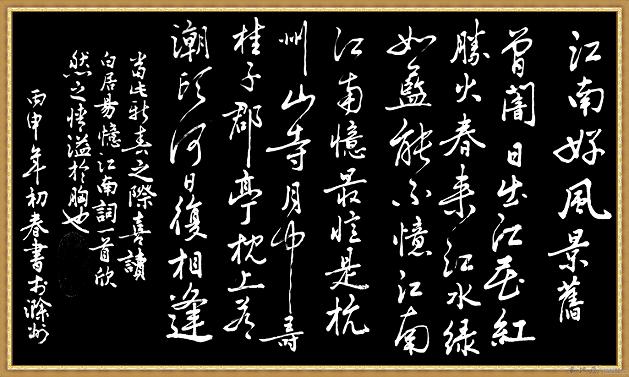 江南好風景舊
曾闇日出江花紅
勝火春来江水绿
如藍能不憶江南
江南憶最忆是杭
州山寺月中尋
桂子郡亭枕上看
潮頭何日復相逢
當此新春之際喜讀
白居易憶江南詞一首欣
然之情溢於胸也
丙申年初春書於滁州